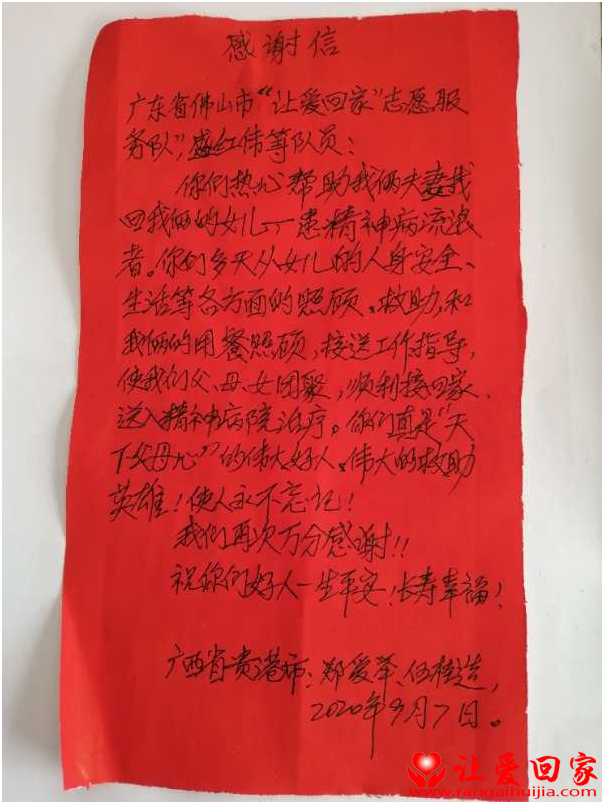 感谢信
广东省佛山市“让爱回家”志愿服
务队”,盛红伟等队员:
你们热心帮助我俩夫妻找
回我俩的女儿一患精神病流浪
者。你们多天从女儿的人身安全、
生活等各方面的照顾、救助,和
我俩的用餐照顾,接送工作指导,
使我们父、母、女团聚,顺利接回家、
送入精神病院治疗。你们真是“天
下父母心”的伟大好人、伟大的救助
英雄!使人永不忘记!
我们再次万分感谢!!
祝你们好人一生平安!长寿幸福!
广西省贵港市:郑爱苹、伍桂连,
2020年9月7日。
让爱回家
www.rangaihuijia.com